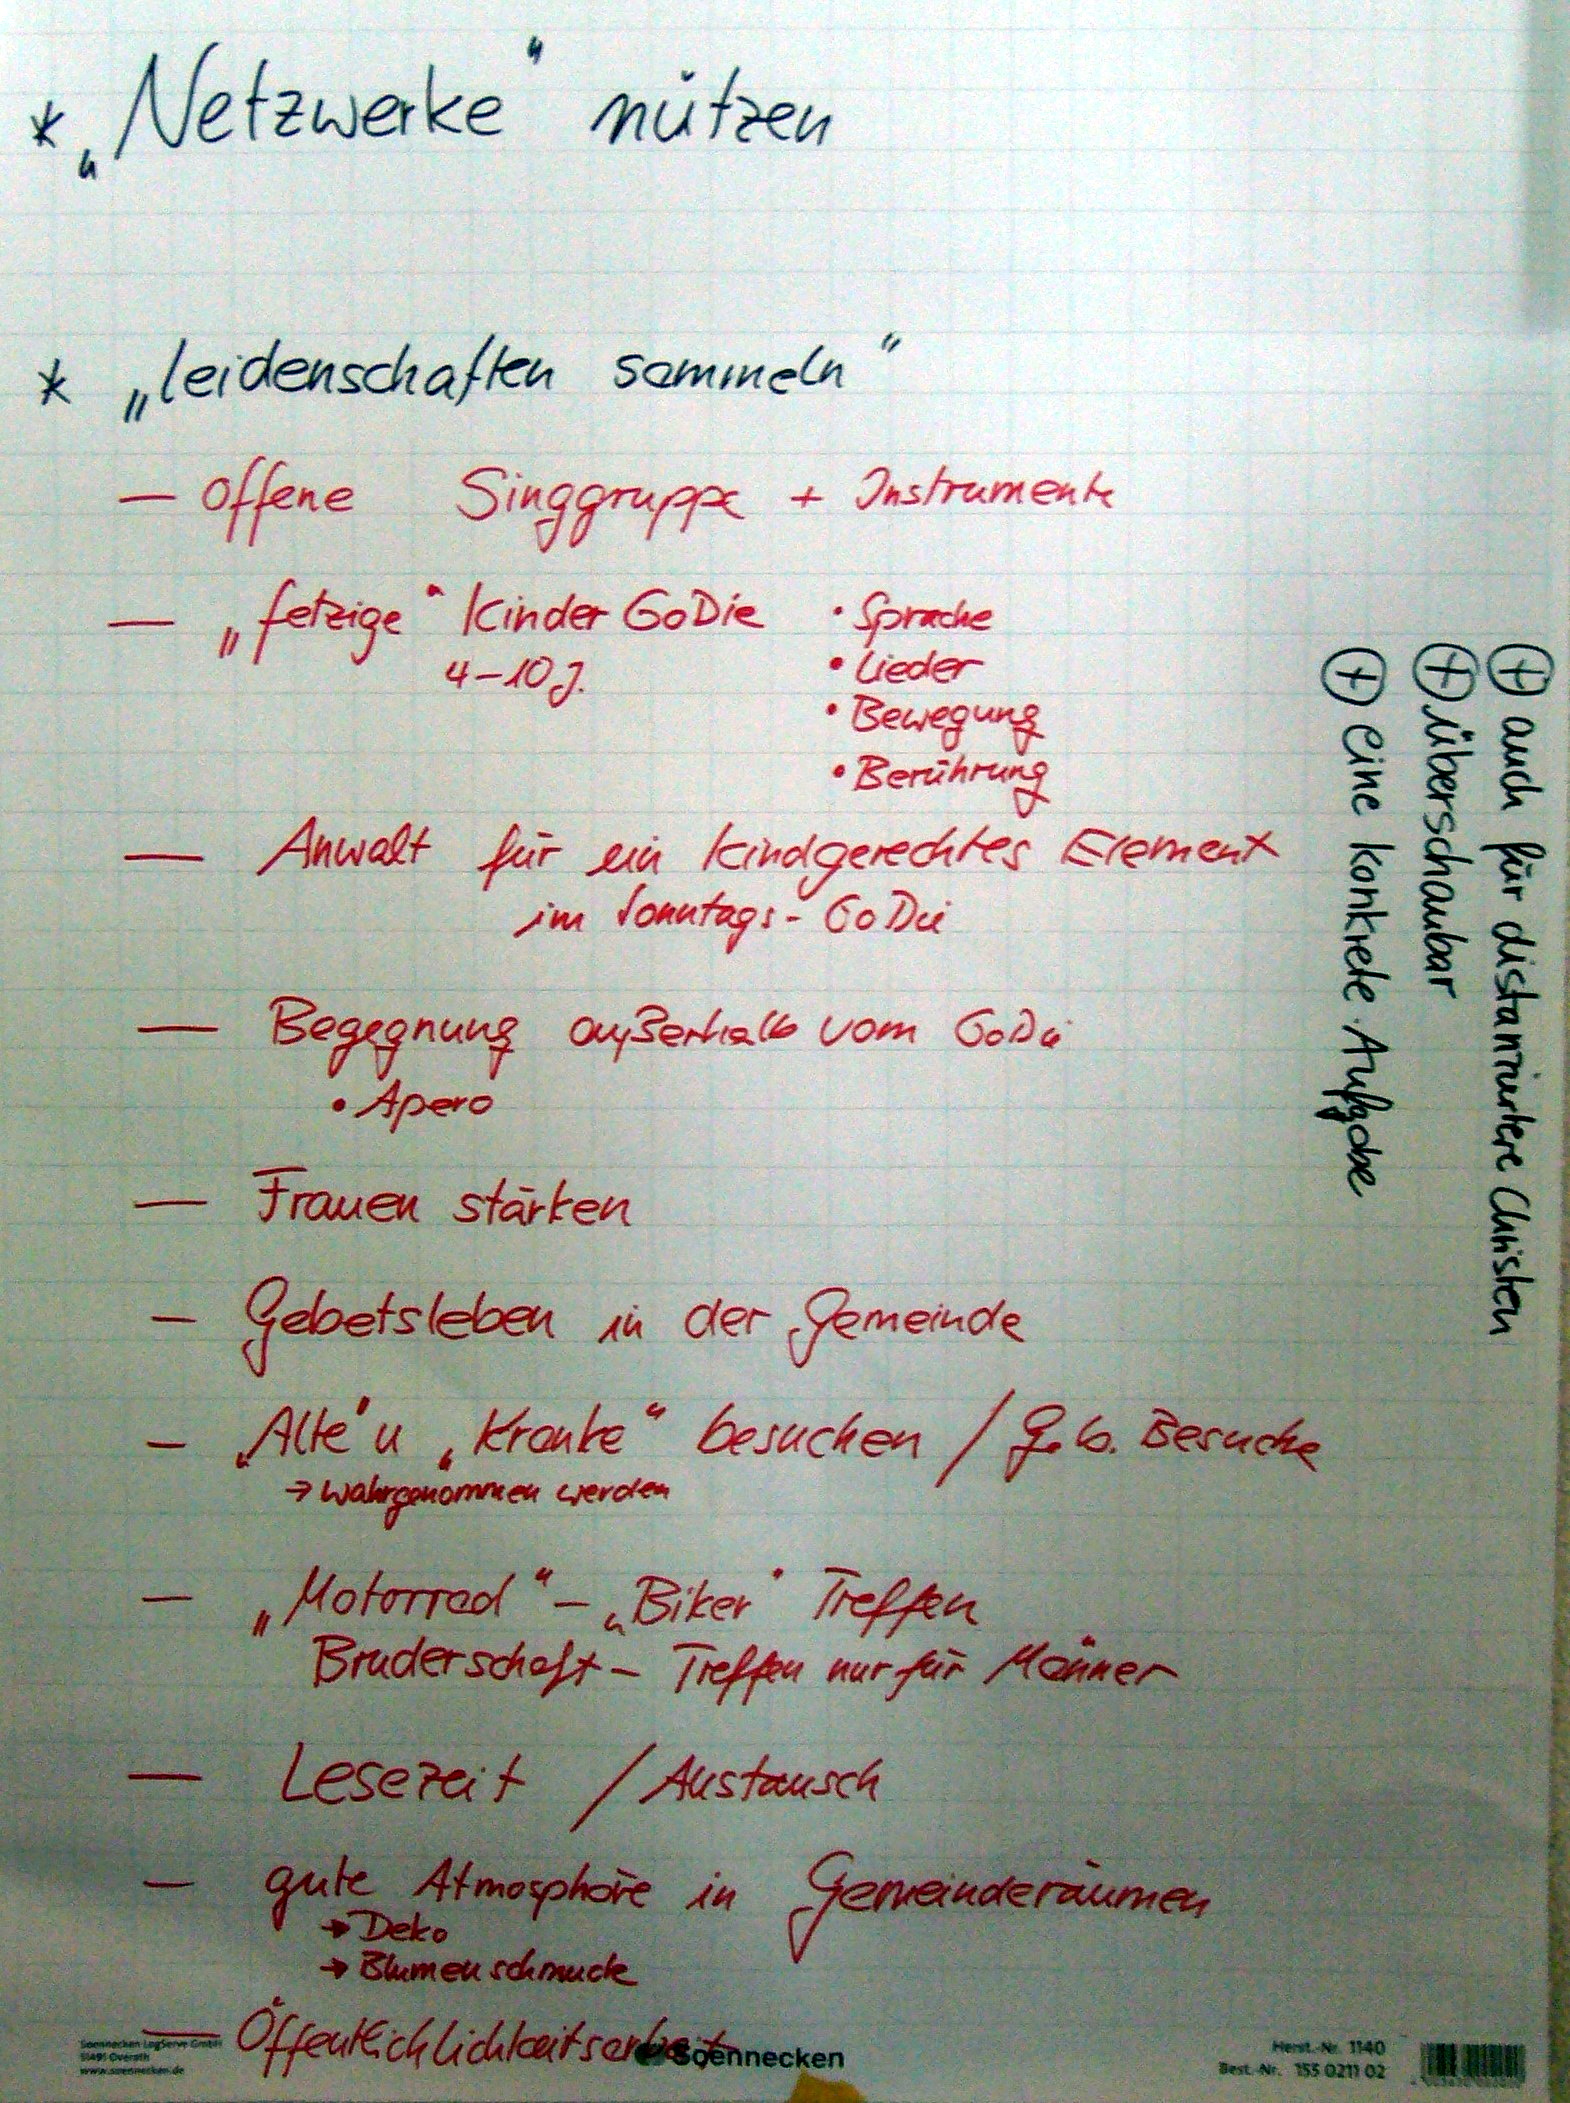 * „Netzwerke" nützen
* „leidenschaften sammeln"
— offene Singgruppe + Instrumente
— „fetzige" Kinder GoDie
4-10 J.
• Sprache
• Lieder
• Bewegung
• Berührung
— Anwalt für ein kindgerechtes Element
im Sonntags-GoDie
— Begegnung außerhalb vom GoDie
• Apero
— Frauen stärken
— Gebetsleben in der Gemeinde
— „Alte" u „Kranke" besuchen / Geb. Besuche
→ wahrgenommen werden
— „Motorrad" – „Biker" Treffen
Bruderschaft – Treffen nur für Männer
— Lesezeit / Austausch
— gute Atmosphäre in Gemeinderäumen
→ Deko
→ Blumenschmuck
— Öffentlichlichkeitsarbeit
⊕ auch für distanziertere Christen
⊕ überschaubar
⊕ eine konkrete Aufgabe
Soennecken LogServe GmbH
51491 Overath
www.soennecken.de
Soennecken
Herst.-Nr. 1140
Best.-Nr. 155 0211 02